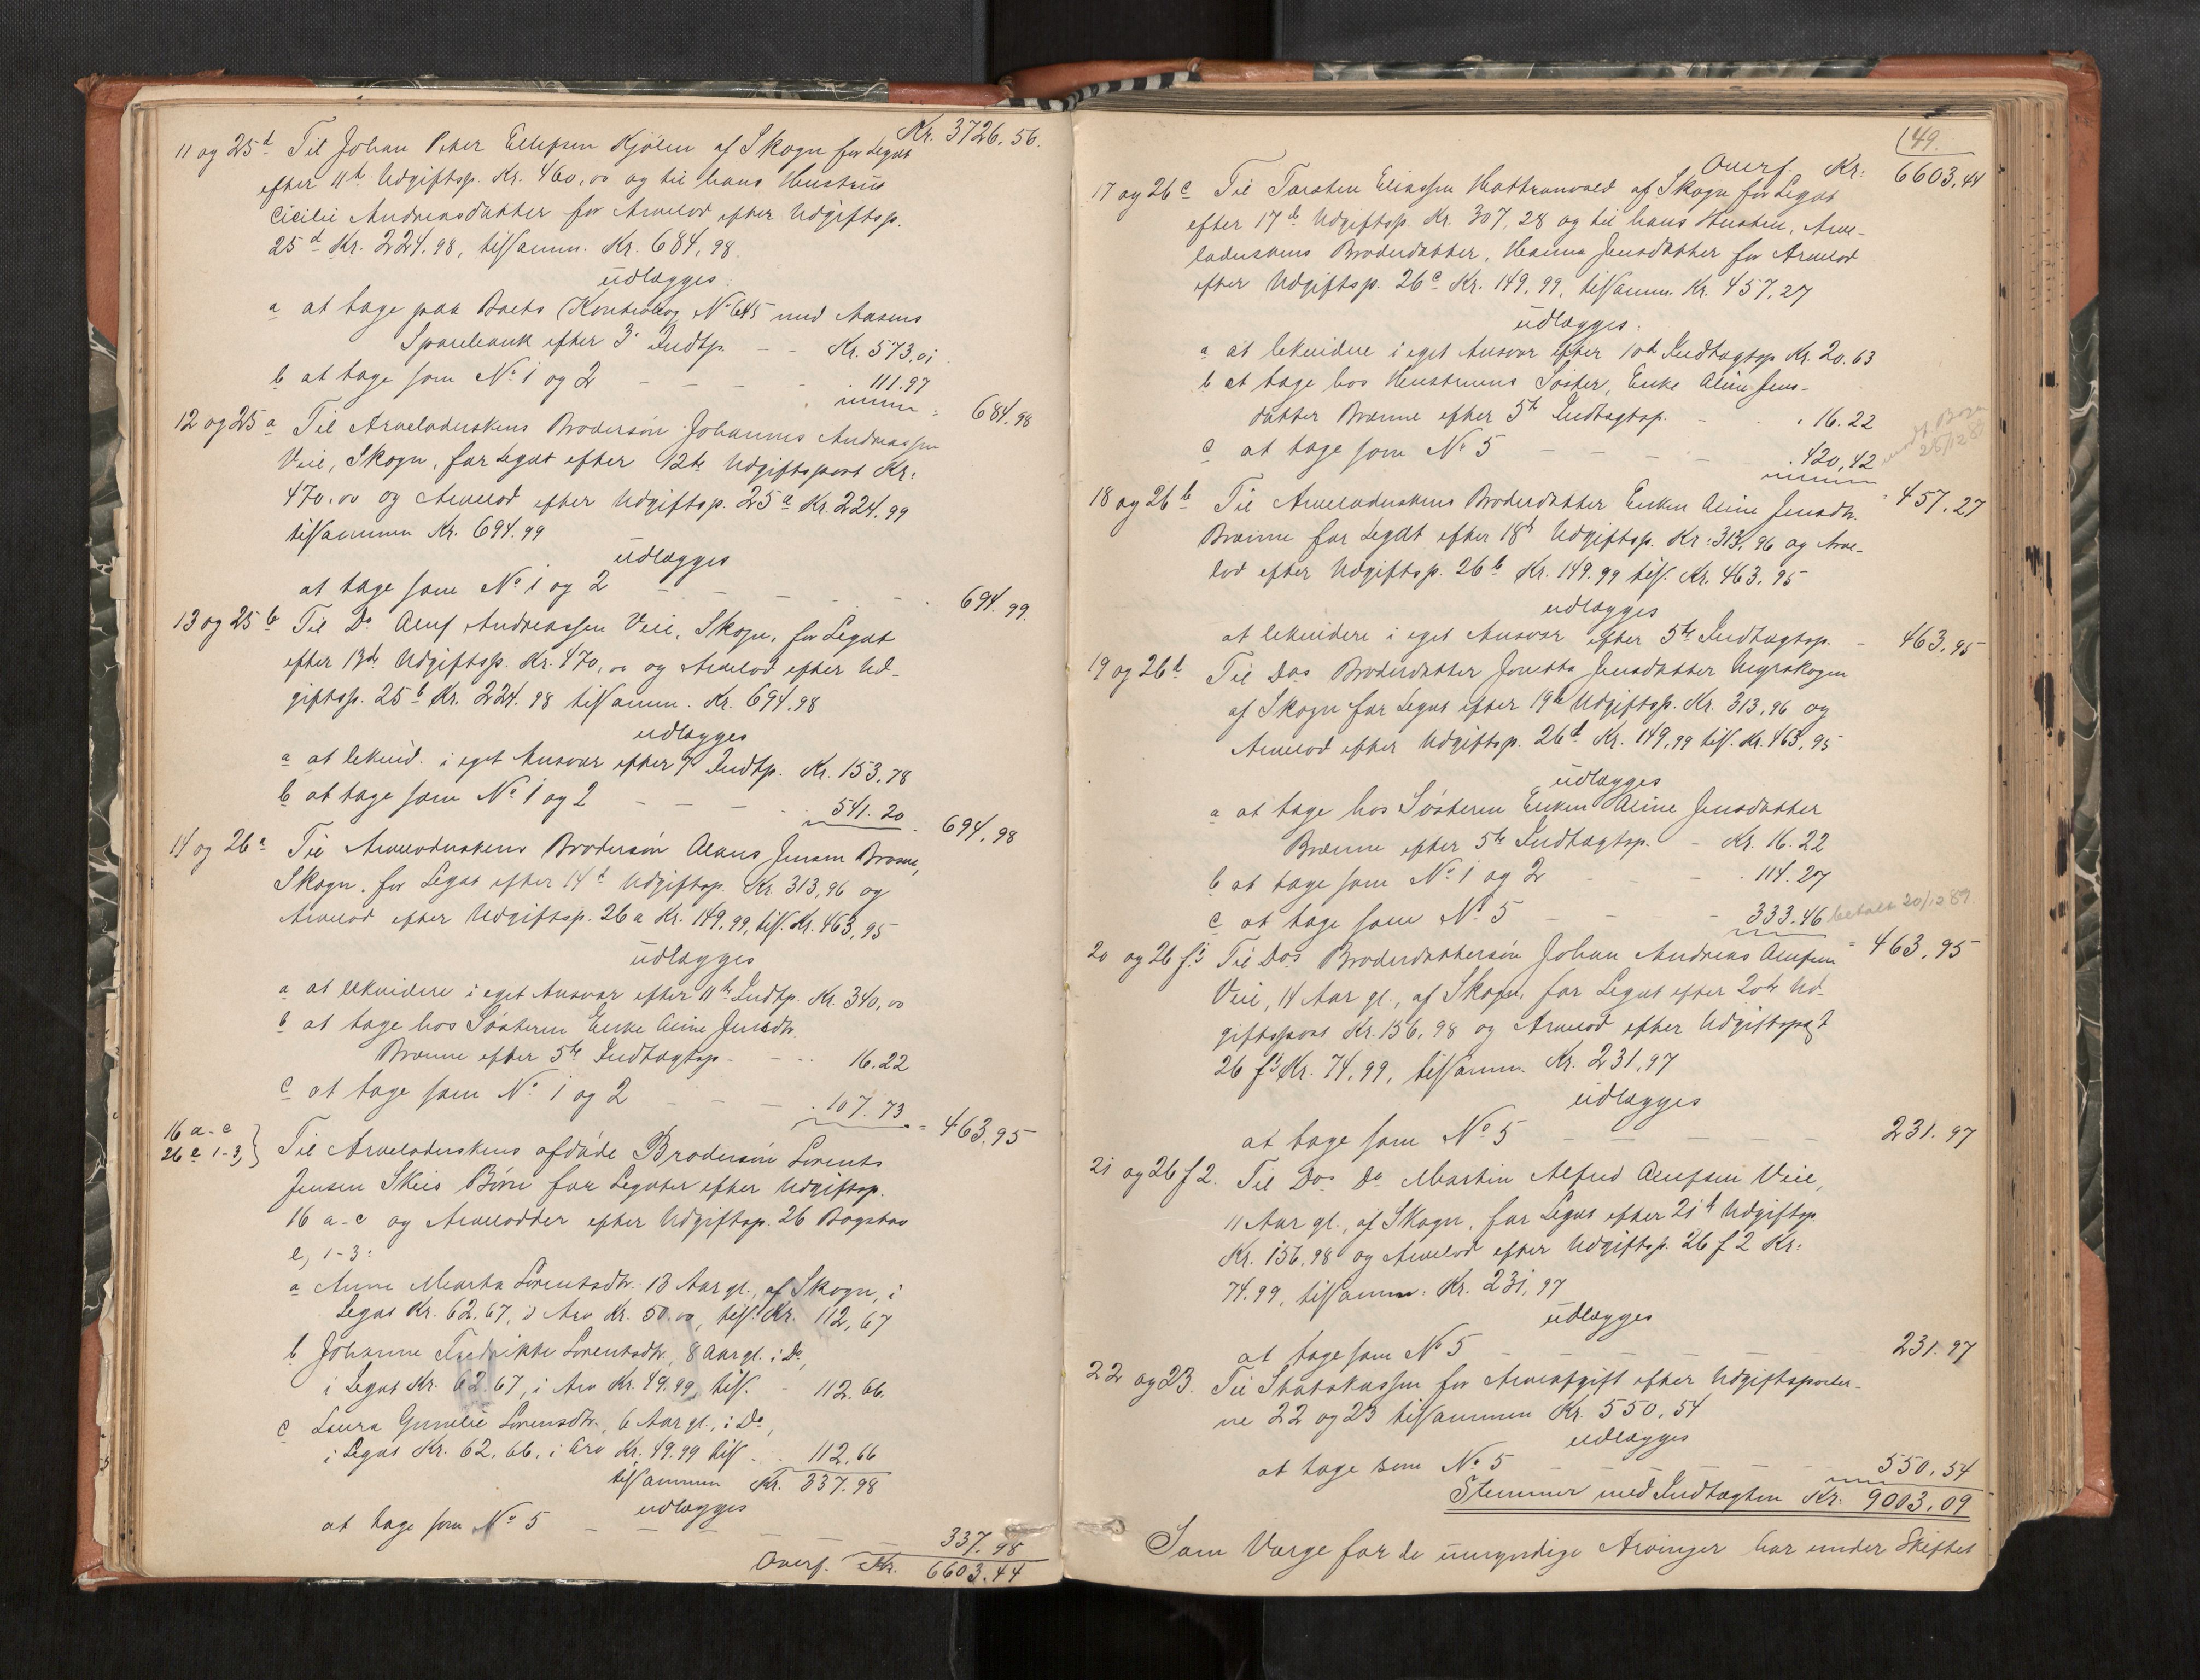 Kr. 3726.56.
11 og 25 d Til Johan Peter Ellefsen Kjölen af Skogn for Legat
efter 11te Udgiftsp. Kr. 460,00 og til hans Hustrus
Cicilie Andreasdatter for Arvelod efter Udgiftsp.
25 d Kr. 224.98, tilsamm. Kr. 684,98
udlægges:
a at tage paa Boets Kontrabog No 645 med Aasens
Sparebank efter 3 Indtp. – – Kr. 573,01
b at tage som No 1 og 2 – – – 111.97
= 684.98
12 og 25 a Til Arveladerskens Brodersön Johannes Andreassen
Veie, Skogn, for Legat efter 12te Udgiftspost Kr.
470.00 og Arvelod efter Udgiftsp. 25 a Kr. 224.99
tilsammen Kr. 694.99
udlægges
at tage som No 1 og 2 – – – – 694.99.
13 og 25 b Til Do Oluf Andreassen Veie, Skogn, for Legat
efter 13de Udgiftsp. Kr. 470,00 og Arvelod efter Ud-
giftsp. 25 b Kr. 224.98 tilsamm. Kr. 694.98
udlægges
a at lekvid. i eget Ansvar efter 7 Indtp. Kr. 153,78
b at tage som No 1 og 2 – – – 541.20
694,98
14 og 26 a Til Arveladerskens Brodersön Claus Jensen Brænne,
Skogn, for Legat efter 14de Udgiftsp. Kr. 313,96 og
Arvelod efter Udgiftsp. 26 a Kr. 149,99, tils. Kr. 463,95
udlægges
a at lekvidere i eget Ansvar efter 11te Indtp. Kr. 340,00
b at tage hos Sösteren Enke Aline Jensdtr.
Brænne efter 5te Indtægtsp. – – 16.22
c at tage som No 1 og 2 – – – 107.73
= 463.95
16 a-c
26 e 1-3, } Til Arveladerskens afdöde Brodersön Lorents
Jensen Skeis Börn for Legater efter Udgiftsp.
16 a-c og Arvelodder efter Udgiftsp. 26 Bogstav
e, 1-3:
a Anne Marta Lorentsdtr. 13 Aar gl., af Skogn, i
Legat Kr. 62.67, i Arv Kr. 50.00, tils. Kr. 112,67
b Johanne Fredrikke Lorentsdtr., 8 Aar gl. i Do,
i Legat Kr. 62.67, i Arv Kr. 49.99, tils. – 112.66
c Laura Gunelie Lorensdtr., 6 Aar gl., i Do,
i Legat Kr. 62.66, i Arv Kr. 49.99 tils – 112.66
tilsammen Kr. 337.98
udlægges
at tage som No 5 – – – – – 337.98
Overf. Kr. 6603.44
49.
Overf. Kr. 6603,44
17 og 26 c Til Torsten Eliassen Hattranvald af Skogn for Legat
efter 17de Udgiftsp. Kr. 307,28 og til hans Hustru, Arve-
laderskens Broderdatter, Hanna Jensdatter for Arvelod
efter Udgiftsp. 26 c Kr. 149.99, tilsamm. Kr. 457,27
udlægges:
a at lekvidere i eget Ansvar efter 10de Indtægtsp Kr. 20.63
b at tage hos Hustruens Söster, Enke Aline Jens-
datter Brænne efter 5te Indtægtsp. – 16.22
c at tage som No 5 – – – – 420,42
457.27
18 og 26 b Til Arveladerskens Broderdatter Enken Aline Jensdtr.
Brænne for Legat efter 18de Udgiftsp. Kr. 313,96 og Arve-
lod efter Udgiftsp. 26 b Kr. 149.99 tils. Kr. 463.95
udlægges
at lekvidere i eget Ansvar efter 5te Indtægtsp. – 463,95
19 og 26 d Til Dos Broderdatter Jonetta Jensdatter Myrskogen
af Skogn for Legat efter 19de Udgiftsp. Kr. 313,96 og
Arvelod efter Udgiftsp. 26 d Kr. 149,99 tils. Kr. 463,95
udlægges
a at tage hos Sösteren Enken Aline Jensdatter
Brænne efter 5te Indtægtsp. – Kr. 16.22
b at tage som No 1 og 2 – – – 114.27
c at tage som No 5 – – – 333.46 betalt 20/12 89.
= 463,95
20 og 26 f.1 Til Dos Broderdattersön Johan Andreas Olufsen
Veie, 14 Aar gl., af Skogn, for Legat efter 20de Ud-
giftspost Kr. 156,98 og Arvelod efter Udgiftspost
26 f 1 Kr. 74,99, tilsamm. Kr. 231,97
udlægges
at tage som No 5 – – – – 231.97
21 og 26 f 2. Til Dos Do Martin Alfred Olufsen Veie,
11 Aar gl., af Skogn, for Legat efter 21de Udgiftsp.
Kr. 156,98 og Arvelod efter Udgiftsp. 26 f 2 Kr.
74.99, tilsamm. Kr. 231,97
udlægges
at tage som No 5 – – – – 231.97
22 og 23. Til Statskassen for Arveafgift efter Udgiftsposter-
ne 22 og 23 tilsammen Kr. 550.54
udlægges
at tage som No 5 – – – – 550.54
Stemmer med Indtægten Kr. 9003.09
Som Værge for de umyndige Arvinger har under Skiftet